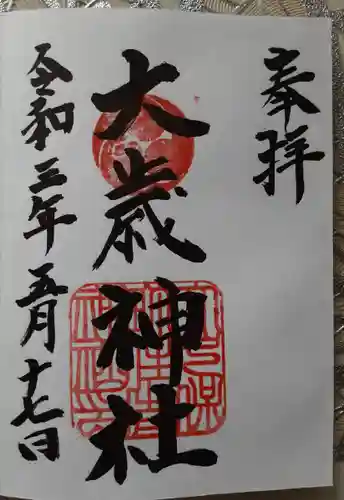 奉拝
大歳神社
令和三年五月十七日